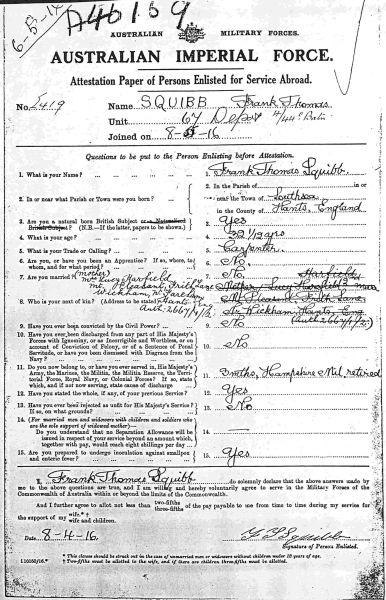 A46159
6-5-16
AUSTRALIAN MILITARY FORCES.
AUSTRALIAN IMPERIAL FORCE.
Attestation Paper of Persons Enlisted for Service Abroad.
No. 5419 Name SQUIBB Frank Thomas
Unit 67 Depot 4/44th Batn
Joined on 8-5-16
Questions to be put to the Person Enlisting before Attestation.
1. What is your Name? 1. Frank Thomas Squibb
2. In or near what Parish or Town were you born? 2. In the Parish of in or
near the Town of Southsea
in the County of Hants, England
3. Are you a natural born British Subject or a Naturalized British Subject? (N.B.—If the latter, papers to be shown) 3. Yes
4. What is your age? 4. 32 1/12 yrs
5. What is your Trade or Calling? 5. Carpenter
6. Are you, or have you been an Apprentice? If so, where, to whom, and for what period? 6. No
7. Are you married? 7. No
(mother)
Mrs Lucy Harfield
Mt. Pleasant, Frith Lane
Wickham, N. Fareham
Hants
Auth: 2667/1/2
8. Who is your next of kin? (Address to be stated) 8. Harfield
Mother Lucy Harfield
Mt Pleasant Frith Lane
Wickham, Hants, Eng
(Auth 2667/1/2)
9. Have you ever been convicted by the Civil Power? 9. No
10. Have you ever been discharged from any part of His Majesty's Forces with Ignominy, or as Incorrigible and Worthless, or on account of Conviction of Felony, or of a Sentence of Penal Servitude, or have you been dismissed with Disgrace from the Navy? 10. No
11. Do you now belong to, or have you ever served in, His Majesty's Army, the Marines, the Militia, the Militia Reserve, the Territorial Force, Royal Navy, or Colonial Forces? If so, state which, and if not now serving, state cause of discharge 11. Hampshire Mil retired
12. Have you stated the whole, if any, of your previous Service? 12. Yes
13. Have you ever been rejected as unfit for His Majesty's Service? If so, on what grounds? 13. No
14. (For married men and widowers with children and soldiers who are the sole support of widowed mother)—
Do you understand that no Separation Allowance will be issued in respect of your service beyond an amount which, together with pay, would reach eight shillings per day? 14.
15. Are you prepared to undergo inoculation against smallpox and enteric fever? 15. Yes
I, Frank Thomas Squibb do solemnly declare that the above answers made by
me to the above questions are true, and I am willing and hereby voluntarily agree to serve in the Military Forces of the
Commonwealth of Australia within or beyond the limits of the Commonwealth.
And I further agree to allot not less than two-fifths three-fifths of the pay payable to me from time to time during my service for
the support of my wife.*† wife and children.
Date 8-4-16. F T Squibb
Signature of Person Enlisted.
* This clause should be struck out in the case of unmarried men or widowers without children under 18 years of age.
† Two-fifths must be allotted to the wife, and if there are children three-fifths must be allotted.